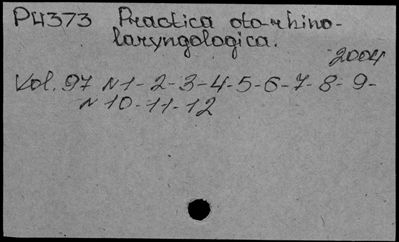 P4373 Practica oto-rhino-
laryngologica.
2004
Vol. 97 N1-2-3-4-5-6-7-8-9-
N10-11-12